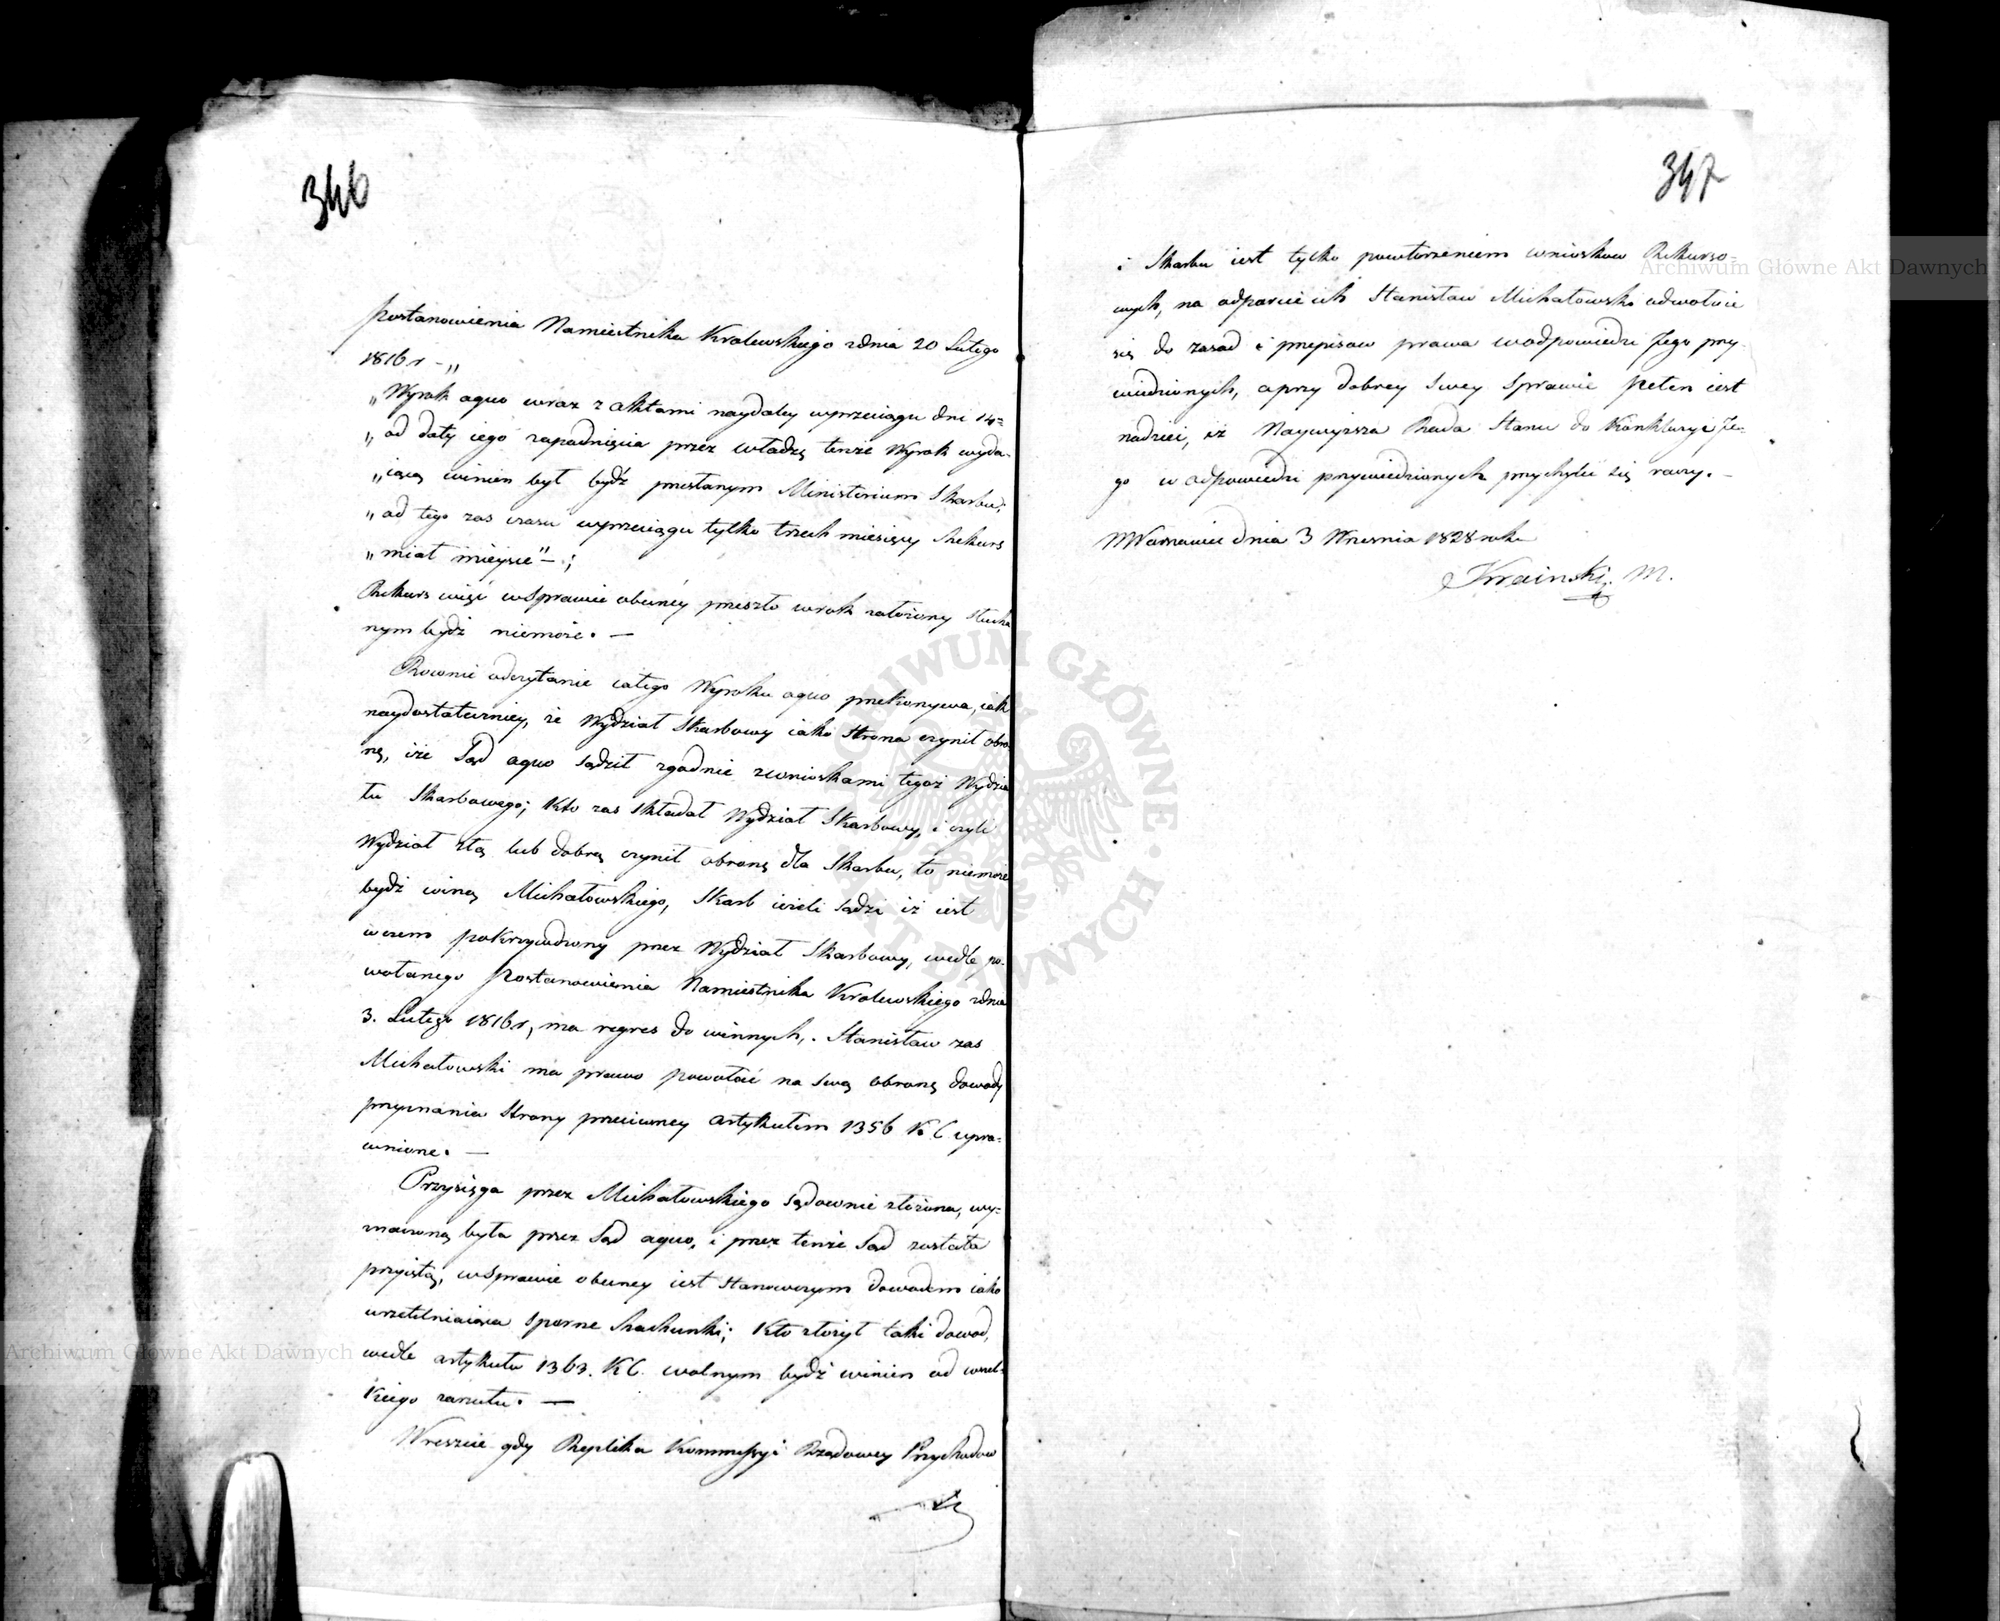 346
postanowienia Namiestnika Krolewskiego zdnia 20 Lutego
1816 r - „
„Wyrok aquo wraz z aktami naydaley wprzeciągu dni 14=
„od daty iego zapadnięcia przez władzę tenże Wyrok wyda-
„iącą winien był bydź przesłanym Ministerium Skarbu,
„od tego zas czasu wprzeciągu tylko trzech miesięcy Rekurs
„miał mieysce" - ;
Rekurs więc wSprawie obecnéy przeszło wrok założony słucha
nym bydź niemoże. —
Rownie odczytanie całego Wyroku aquo przekonywa, iak
naydostateczniey, że Wydział Skarbowy iako Strona czynił obro
nę, iże Sąd aquo sądził zgodnie zwnioskami tegoż Wydzia
łu Skarbowego; Kto zas składał Wydział Skarbowy, i czyli
Wydział złą lub dobrą czynił obronę dla Skarbu, to niemoże
bydź winą Michałowskiego, Skarb ieżeli sądzi iż iest
wczem pokrzywdzony przez Wydział Skarbowy, wedle po-
wołanego Postanowienia Namiestnika Krolewskiego zdnia
3. Lutego 1816 r, ma regres do winnych, . Stanisław zas
Michałowski ma prawo powołać na swą obronę dowody
przyznania Strony przeciwney artykułem 1356 K C upra-
wnione. —
Przysięga przez Michałowskiego sądownie złożona, wy=
znaczoną była przez Sąd aquo, i przez tenże Sąd została
przyiętą, wSprawie obecney iest stanowczym dowodem iako
urzetelniaiąca sporne Rachunki; Kto złożył taki dowod,
wedle artykułu 1363. K C. wolnym bydź winien od wszel-
kiego zarzutu. —
Wreszcie gdy Replika Kommissyi Rządowey Przychodow
347
i Skarbu iest tylko powtorzeniem wnioskow Rekurso=
wych, na odparcie ich Stanisław Michałowski odwołuie
się do zasad i przepisow prawa wodpowiedzi Jego przy-
wiedzionych, aprzy dobrey swey sprawie pełen iest
nadziei, iż Naywyższa Rada Stanu do Konkluzyi Je-
go w odpowiedzi przywiedzionych przychylić się raczy. -
WWarszawie dnia 3 Wrzesnia 1828 roku
Krainski. M.
Archiwum Główne Akt Dawnych
ARCHIWUM GŁÓWNE AKT DAWNYCH
Archiwum Główne Akt Dawnych